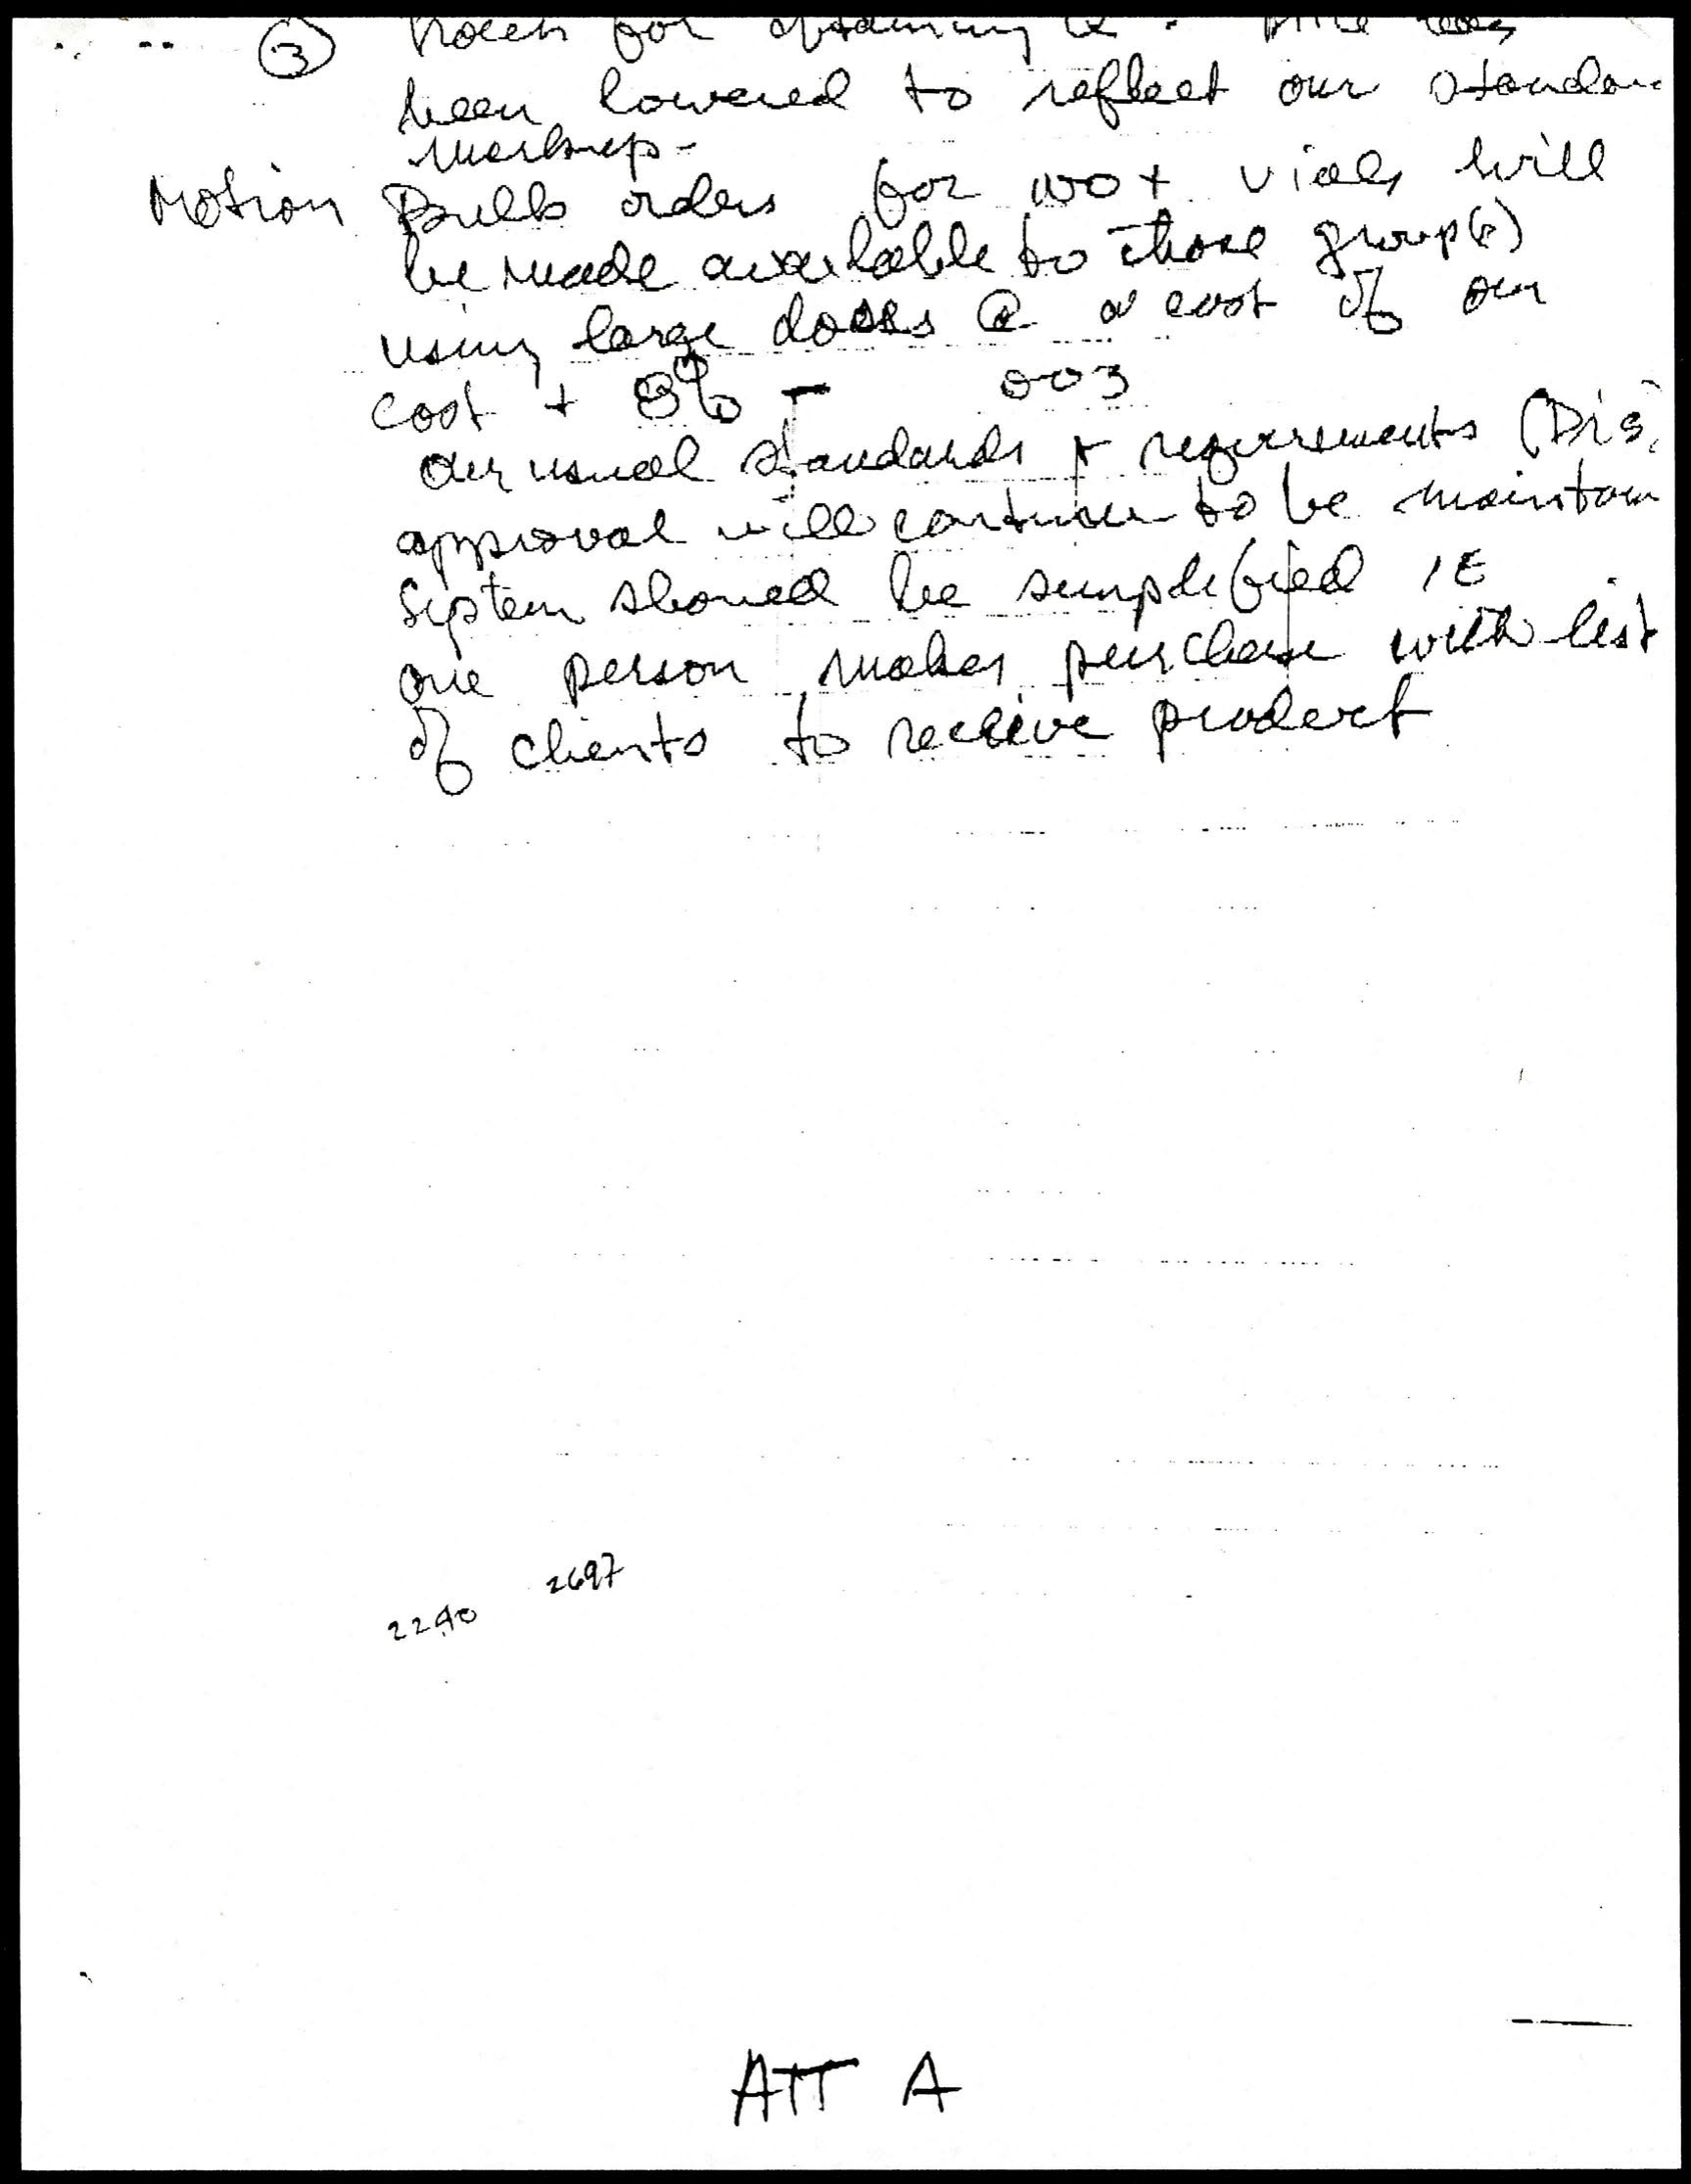 ③ for obtaining it. Price has
been lowered to reflect our standar
markup-
Motion Bulk orders for 100+ vials will
be made available to those group(s)
using large doses @ a cost of our
cost + 8% - 003
our usual standards + requirements (Drs.
approval will continue to be maintain
System should be simplified IE
one person makes purchase with list
of clients to receive product
2697
2290
ATT A